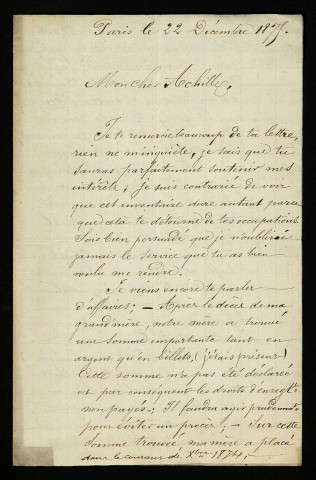 Paris le 22 Décembre 187
Mon cher Achille,
Je te remercie beaucoup de ta lettre,
rien ne m'inquiète, je sais que tu
sauras parfaitement soutenir mes
intérêts, je suis contrarié de voir
que cet inventaire dure autant parce
que cela te détourne de tes occupations.
Sois bien persuadé que je n'oublierai
jamais le service que tu as bien
voulu me rendre.
Je viens encore te parler
d'affaires; - Après le décès de ma
grand'mère, notre mère a trouvé
une somme importante tant en
argent qu'en billets, (j'étais présent)
Cette somme n'a pas été déclarée
et par conséquent les droits d'enregt
non payés; Il faudra agir prudemmt
pour éviter un procès; - Sur cette
somme trouvée, ma mère a placé
dans le courant de Xbre 1874,